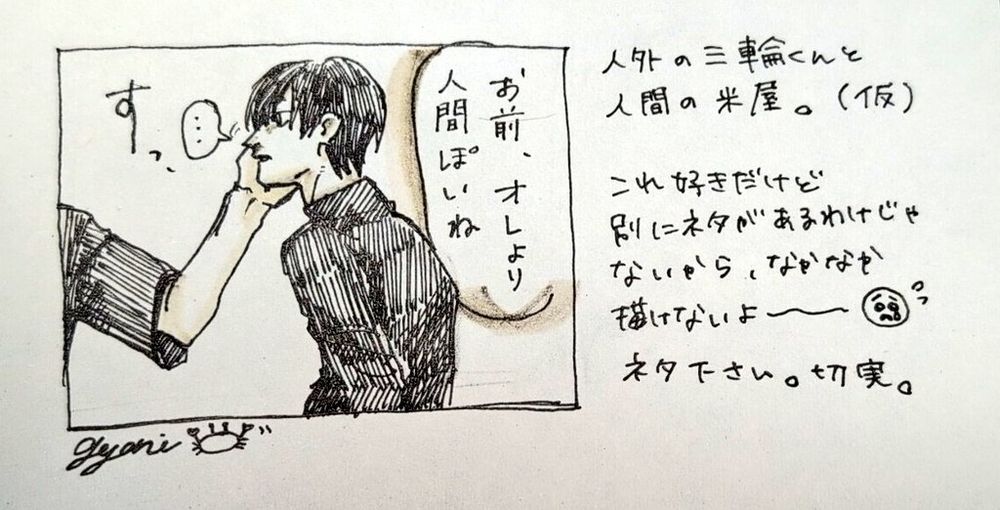 お前、オレより
人間ぽいね
…
すっ、
人外の三輪くんと
人間の米屋。(仮)
これ好きだけど
別にネタがあるわけじゃ
ないから、なかなか
描けないよ〜
ネタ下さい。切実。
gyani